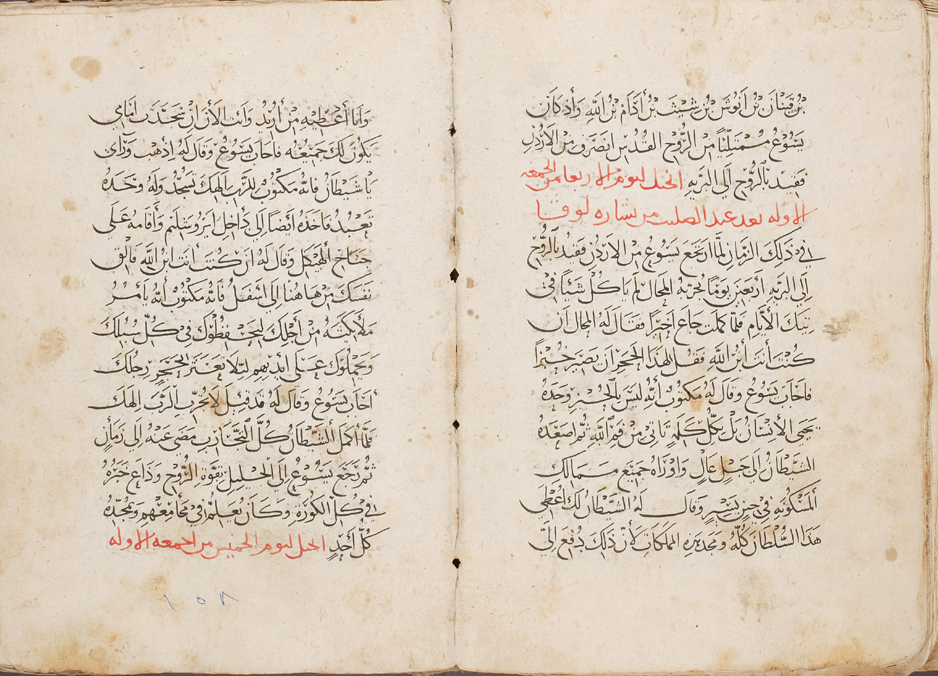 بن قينان بن أنوش بن شيث بن أدام بن الله واذ كان
يسوع ممتلئًا من الروح القدس انصرف من الأردن
فقيد بالروح الى البريه انجيل ليوم الاربعا من الجمعه
الاوله بعد عيد الصليب من بشاره لوقا
في ذلك الزمان لما رجع يسوع من الاردن فقيد بالروح
الى البريه أربعين يومًا يجربه المحال لم ياكل شيئًا في
تيك الأيام فلما كملت جاع اخيرًا فقال له المحال ان
كنت أنت ابن الله فقل لهذا الحجر ان يصير خبزًا
فاجاب يسوع وقال له مكتوب أنه ليس بالخبز وحده
يحيى الأنسان بل بكل كلمه تاتي من فم الله ثم اصعده
الشيطان الى جبل عال واوراه جميع ممالك
المسكونه في حين يسير وقال له الشيطان لك أعطي
هذا السلطان كله ومجد هذه المملكات لأن ذلك دفع الي
وانا أعطيه من أريد وانت الأن ان سجدت امامي
يكون لك جميعه فاجاب يسوع وقال له اذهب وراي
يا شيطان فانه مكتوب للرب الهك تسجد وله وحده
تعبد فاخذه ايضًا الى داخل يروسليم وأقامه على
جناح الهيكل وقال له ان كنت أنت ابن الله فالق
نفسك من هاهنا الى أسفل فانه مكتوب انه يامر
ملايكته من أجلك ليحفظوك في كل سبلك
ويحملوك على ايديهم ليلا تعثر بالحجر رجلك
أجاب يسوع وقال له قد قيل لا تجرب الرب الهك
فلما اكمل الشيطان كل التجارب مضى عنه إلى زمان
ثم رجع يسوع إلى الجليل بقوة الروح وذاع خبره
في كل الكورة وكان يعلم في مجامعهم ويمجده
كل أحد انجيل ليوم الخميس من الجمعه الاوله
١٥٨